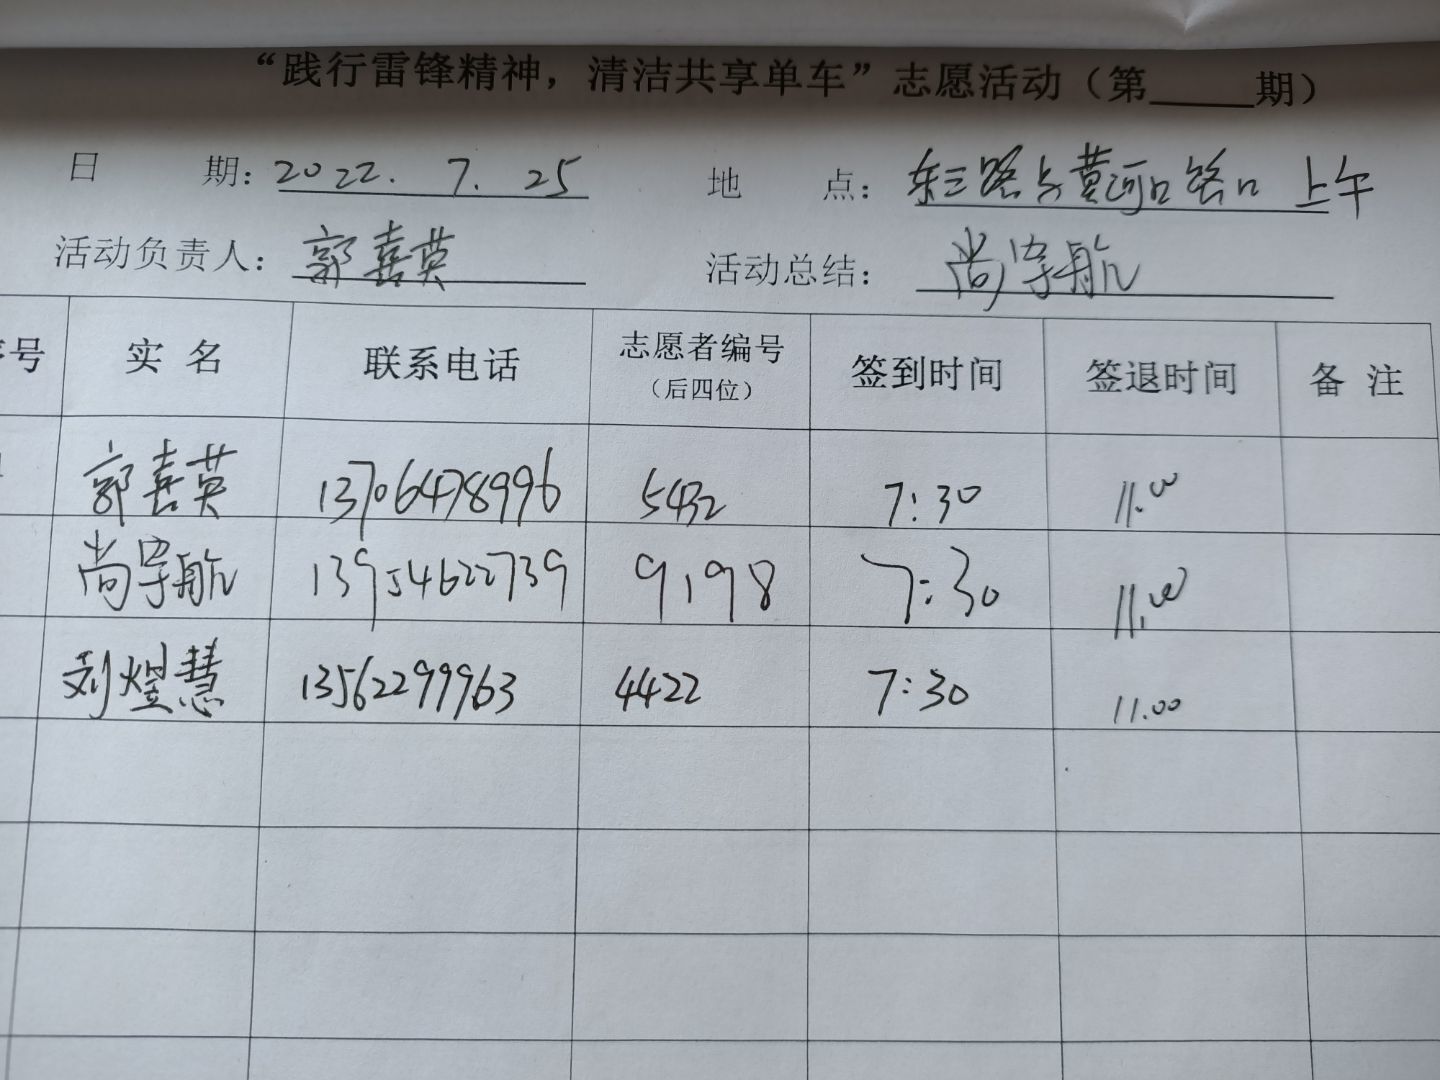 “践行雷锋精神，清洁共享单车”志愿活动（第_____期）
日 期：2022.7.25 地 点：东三路与黄河口路口 上午
活动负责人：郭喜英 活动总结：尚宇航
序号 实名 联系电话 志愿者编号（后四位） 签到时间 签退时间 备注
郭喜英 13706478996 5432 7:30 11.00
尚宇航 13954622739 9198 7:30 11.00
刘煜慧 13562299963 4422 7:30 11.00